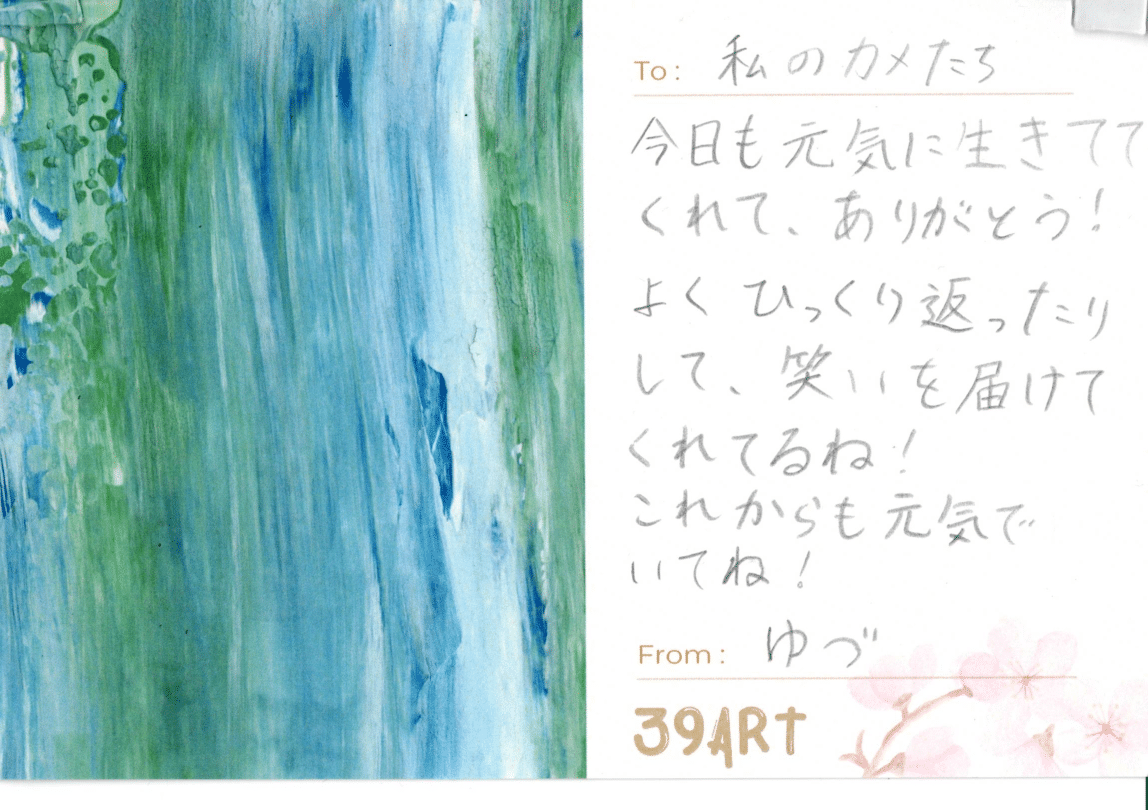 To: 私のカメたち
今日も元気に生きてて
くれて、ありがとう!
よくひっくり返ったり
して、笑いを届けて
くれてるね!
これからも元気で
いてね!
From: ゆづ
39ART